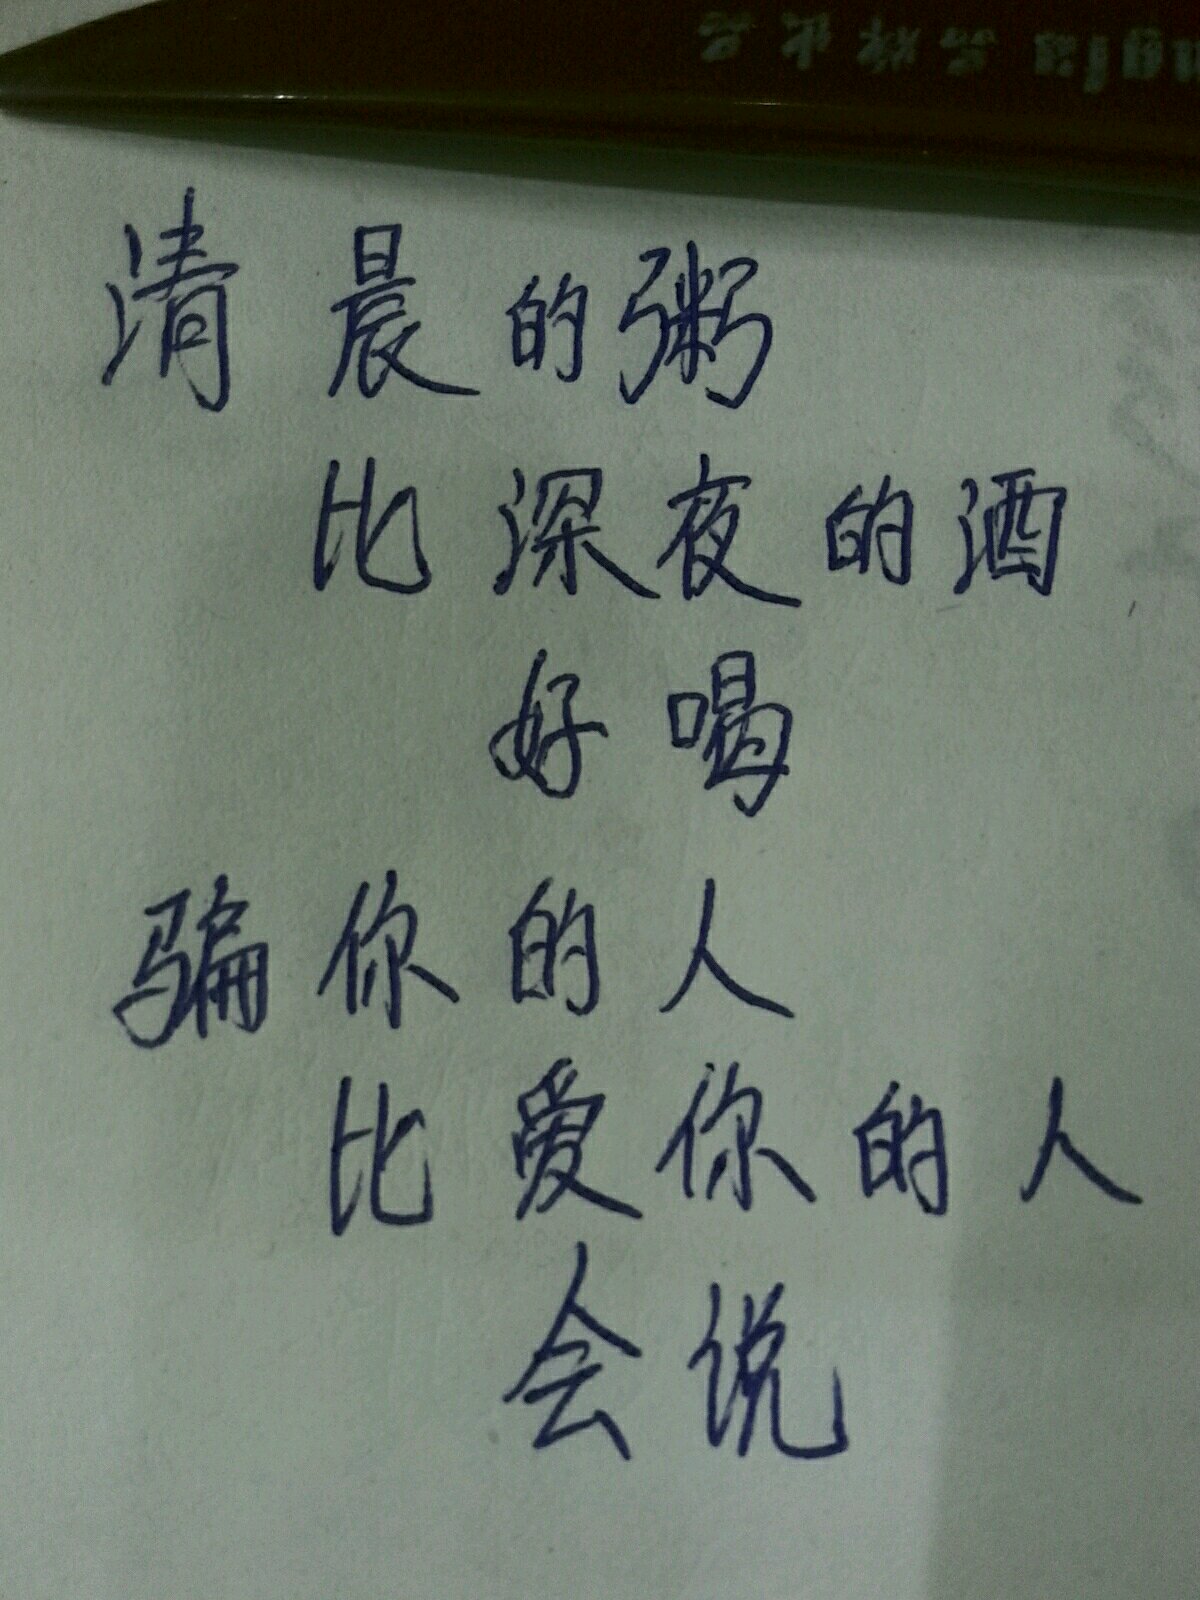 清晨的粥
比深夜的酒
好喝
骗你的人
比爱你的人
会说